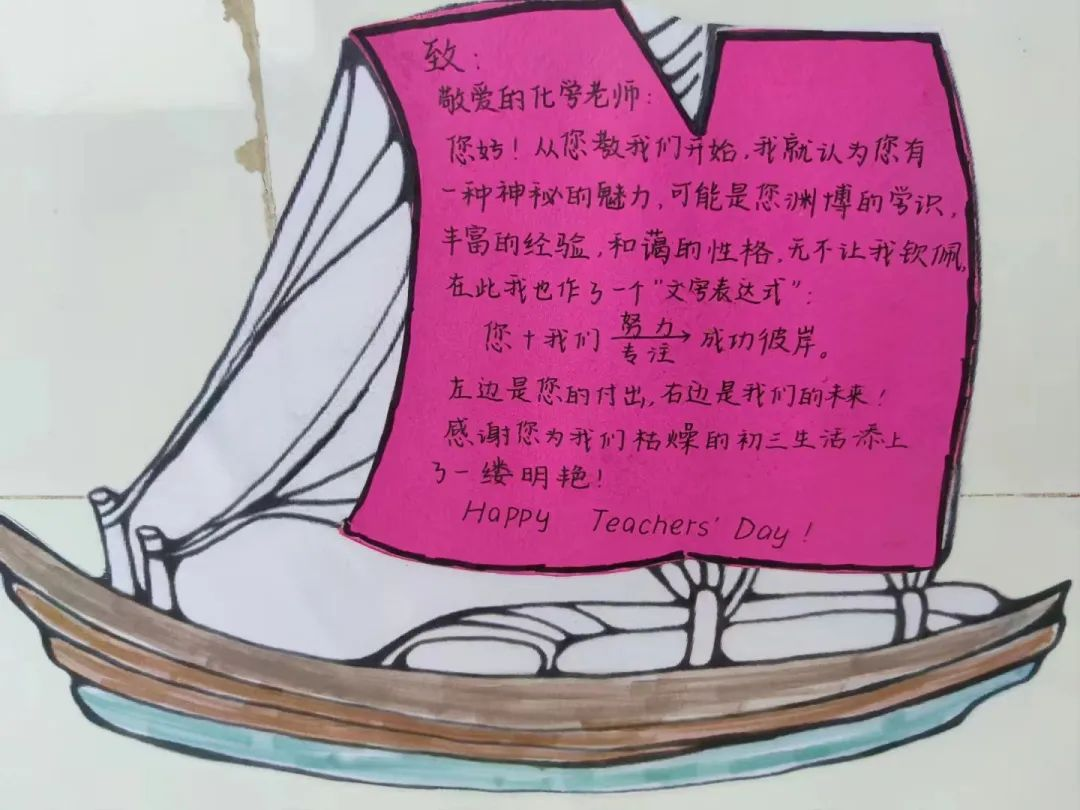 致：
敬爱的化学老师：
您好！从您教我们开始，我就认为您有
一种神秘的魅力，可能是您渊博的学识，
丰富的经验，和蔼的性格，无不让我钦佩。
在此我也作了一个“文字表达式”：
您+我们 努力 专注 → 成功彼岸。
左边是您的付出，右边是我们的未来！
感谢您为我们枯燥的初三生活添上
了一缕明艳！
Happy Teachers' Day!